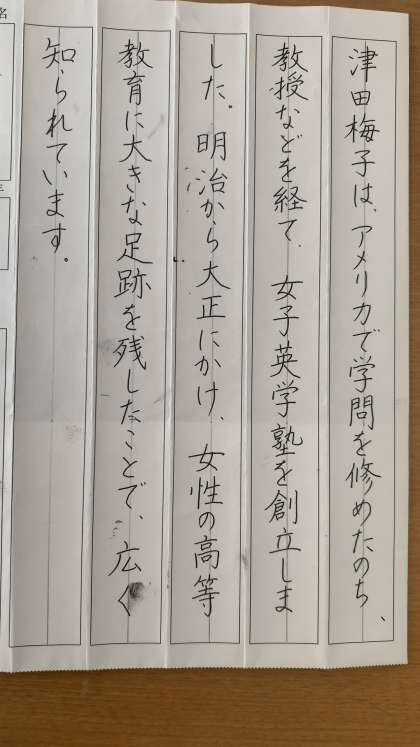 津田梅子は、アメリカで学問を修めたのち、
教授などを経て、女子英学塾を創立しま
した。明治から大正にかけ、女性の高等
教育に大きな足跡を残したことで、広く
知られています。
名